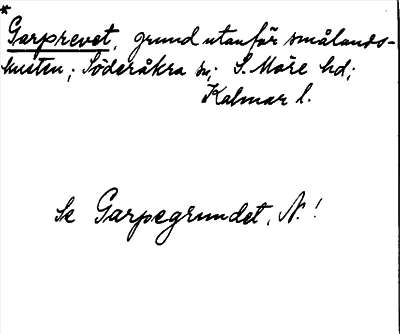 *
Garprevet, grund utanför smålands-
kusten; Söderåkra sn; S. Möre hd;
Kalmar l.
Se Garpegrundet, N.!